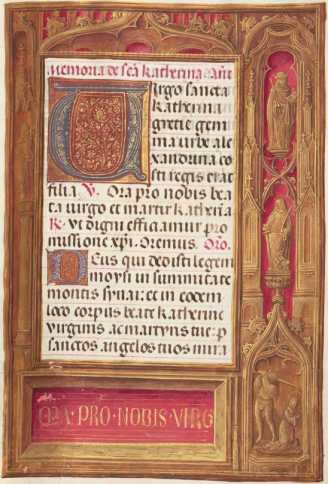 Memoria de scā katherina Añ
Virgo sancta
katherina
gretie gem
ma urbe ale
xandrina co
sti regis erat
filia V. Ora pro nobis bea
ta uirgo et martir katheria
R. Vt digni efficiamur pro
missione xp̄i. Oremus. Oro.
Deus qui dedisti legem
moysi in summitate
montis synai: et in eodem
loco corpus beate katherine
virginis ac martyris tue: p
sanctos angelos tuos mira
ORA · PRO · NOBIS · VIRG